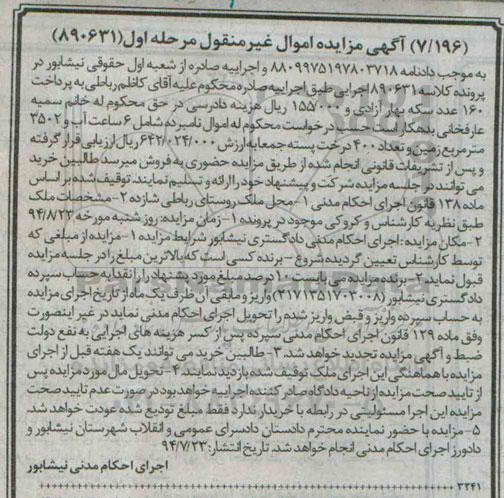 (۷/۱۹۶) آگهی مزایده اموال غیر منقول مرحله اول (۸۹۰۶۳۱)
به موجب دادنامه ۸۸۰۹۹۷۵۱۹۷۸۰۳۷۱۸ و اجراییه صادره از شعبه اول حقوقی نیشابور در
پرونده کلاسه ۸۹۰۶۳۱ اجرایی طبق اجراییه صادره محکوم علیه آقای کاظم رباطی به پرداخت
۱۶۰ عدد سکه بهار آزادی و ۱۵۵/۰۰۰ ریال هزینه دادرسی در حق محکوم له خانم سمیه
عارفخانی بدهکار است حسب درخواست محکوم له اموال نامبرده شامل ۶ ساعت آب و ۳۵۰۲
متر مربع زمین و تعداد ۴۰۰ درخت پسته جمعا به ارزش ۶۴۲/۰۲۴/۰۰۰ ریال ارزیابی قرار گرفته
و پس از تشریفات قانونی انجام شده از طریق مزایده حضوری به فروش میرسد طالبین خرید
می توانند در جلسه مزایده شرکت و پیشنهاد خود را ارائه و تسلیم نمایند. توقیف شده بر اساس
ماده ۱۳۸ قانون اجرای احکام مدنی ۱-محل ملک روستای رباطی شازده ۲-مشخصات ملک
طبق نظریه کارشناس و کروکی موجود در پرونده ۱-زمان مزایده: روز شنبه مورخه ۹۴/۸/۲۳
۲-مکان مزایده: اجرای احکام مدنی دادگستری نیشابور شرایط مزایده ۱-مزایده از مبلغی که
توسط کارشناس تعیین گردیده شروع - برنده کسی است که بالاترین مبلغ را در جلسه مزایده
قبول نماید. ۲-برنده مزایده می بایست ۱۰ درصد مبلغ مورد پیشنهاد را نقدا به حساب سپرده
دادگستری نیشابور (۲۱۷۱۳۵۱۷۰۲۰۰۸) واریز و مابقی آن ظرف یک ماه از تاریخ اجرای مزایده
به حساب سپرده واریز و قبض واریز شده را تحویل اجرای احکام مدنی نماید در غیر اینصورت
وفق ماده ۱۲۹ قانون اجرای احکام مدنی سپرده پس از کسر هزینه های اجرایی به نفع دولت
ضبط و آگهی مزایده تجدید خواهد شد. ۳-طالبین خرید می توانند یک هفته قبل از اجرای
مزایده با هماهنگی این اجرای ملک توقیف شده بازدید نمایند ۴-تحویل مال مورد مزایده پس
از تایید صحت مزایده از ناحیه دادگاه صادر کننده اجراییه خواهد بود در صورت عدم تایید صحت
مزایده این اجرا مسئولیتی در رابطه با خریدار ندارد فقط مبلغ تودیع شده عودت خواهد شد.
۵-مزایده با حضور نماینده محترم دادستان دادسرای عمومی و انقلاب شهرستان نیشابور و
دادورز اجرای احکام مدنی انجام خواهد شد. تاریخ انتشار: ۹۴/۷/۲۳
اجرای احکام مدنی نیشابور
۳۲۴۱